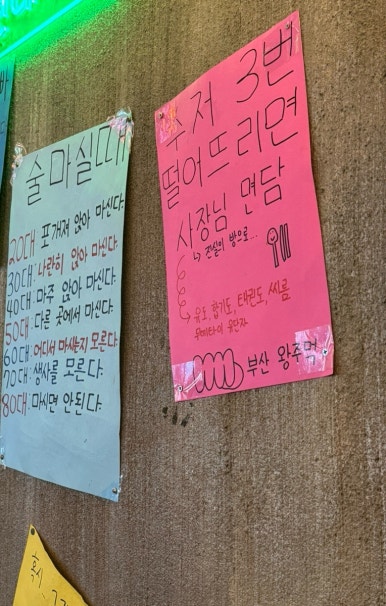 술 마실때
20대: 포개져 앉아 마신다.
30대: 나란히 앉아 마신다.
40대: 마주 앉아 마신다.
50대: 다른 곳에서 마신다.
60대: 어디서 마시는지 모른다.
70대: 생사를 모른다.
80대: 마시면 안된다.
수저 3번
떨어뜨리면
사장님 면담
↳ 진실의 방으로...
유도, 합기도, 태권도, 씨름
무에타이 유단자
부산 왕주먹
혹시